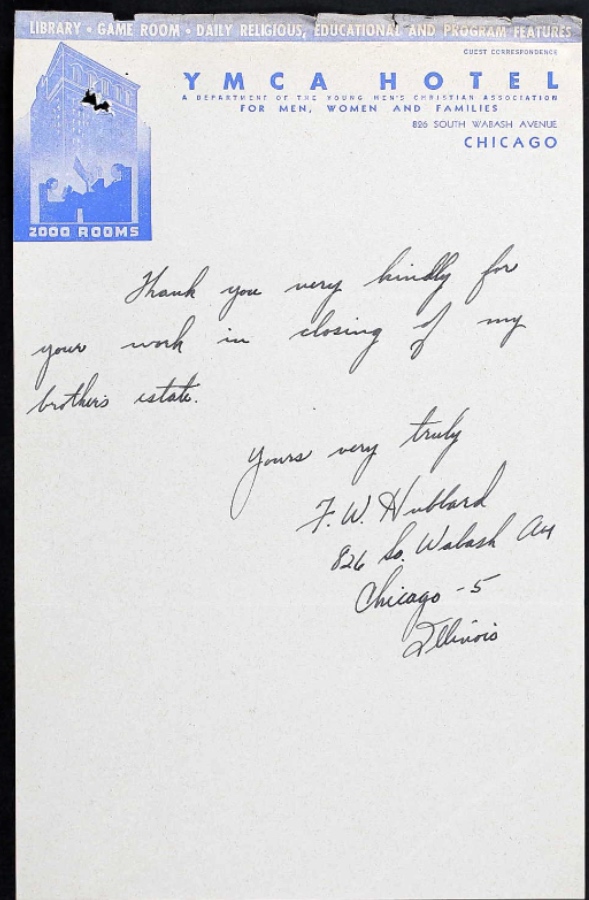 LIBRARY • GAME ROOM • DAILY RELIGIOUS, EDUCATIONAL AND PROGRAM FEATURES
GUEST CORRESPONDENCE
YMCA HOTEL
A DEPARTMENT OF THE YOUNG MEN'S CHRISTIAN ASSOCIATION
FOR MEN, WOMEN AND FAMILIES
826 SOUTH WABASH AVENUE
CHICAGO
2000 ROOMS
Thank you very kindly for
your work in closing of my
brother's estate.
Yours very truly
F. W. Hubbard
826 So. Wabash Av
Chicago - 5
Illinois